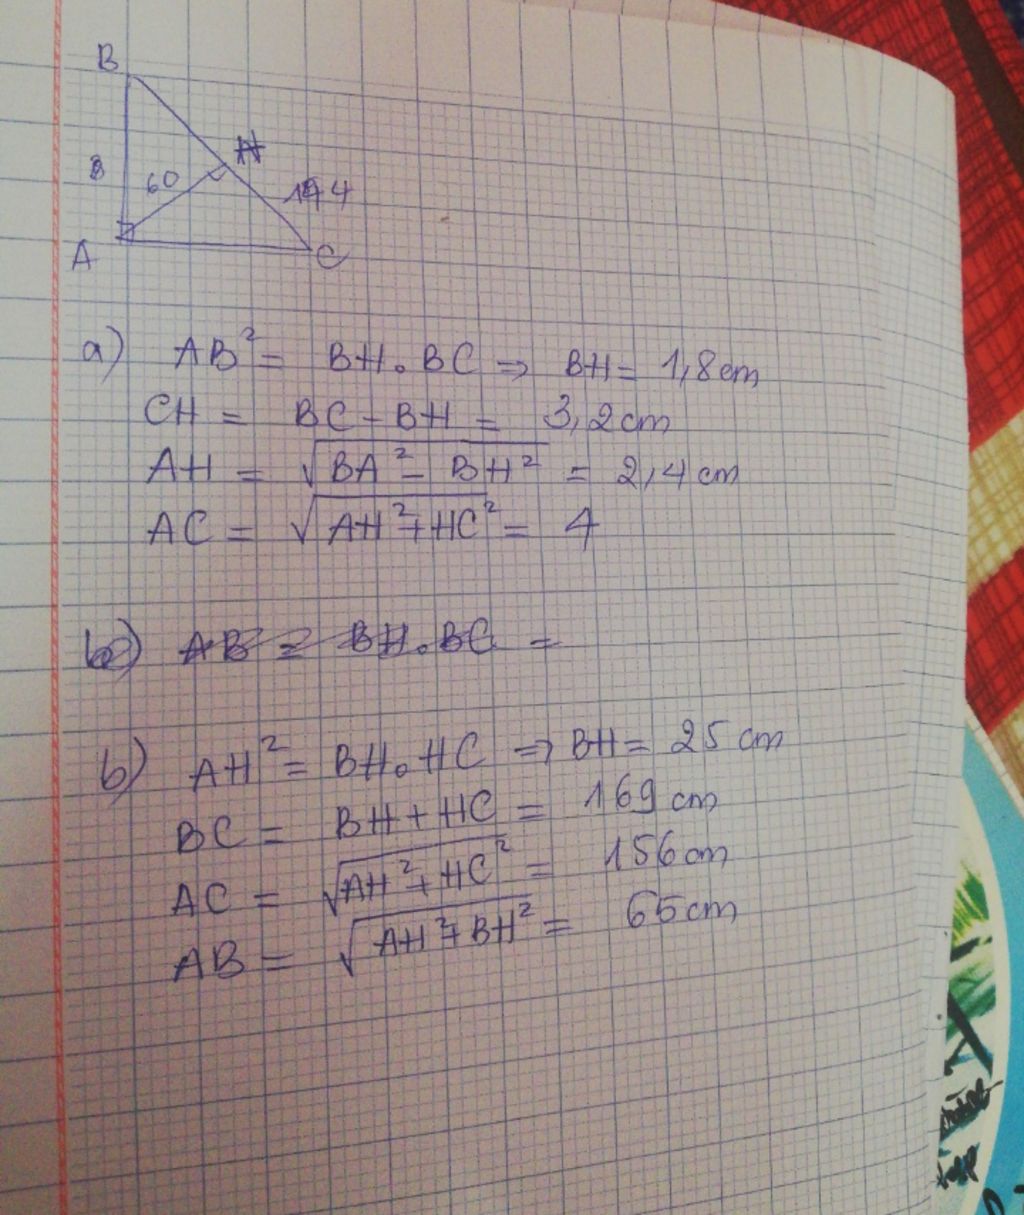 B
H
8 60 144
A C
a) AB² = BH.BC ⇒ BH = 1,8cm
CH = BC - BH = 3,2cm
AH = √BA² - BH² = 2,4cm
AC = √AH²+HC² = 4
b) AB² = BH.BC =
b) AH² = BH.HC ⇒ BH = 25 cm
BC = BH + HC = 169 cm
AC = √AH²+HC² = 156cm
AB = √AH²+BH² = 65cm